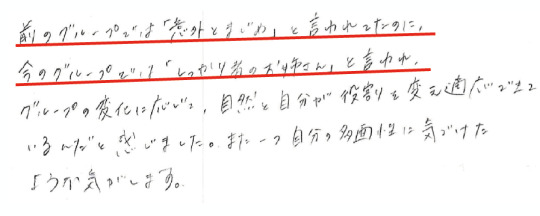 前のグループでは「意外とまじめ」と言われてたのに、
今のグループでは「しっかり者のお姉さん」と言われ、
グループの変化に応じて、自然と自分が役割を変え適応できて
いるんだと感じました。また一つ自分の多面性に気づけた
ような気がします。